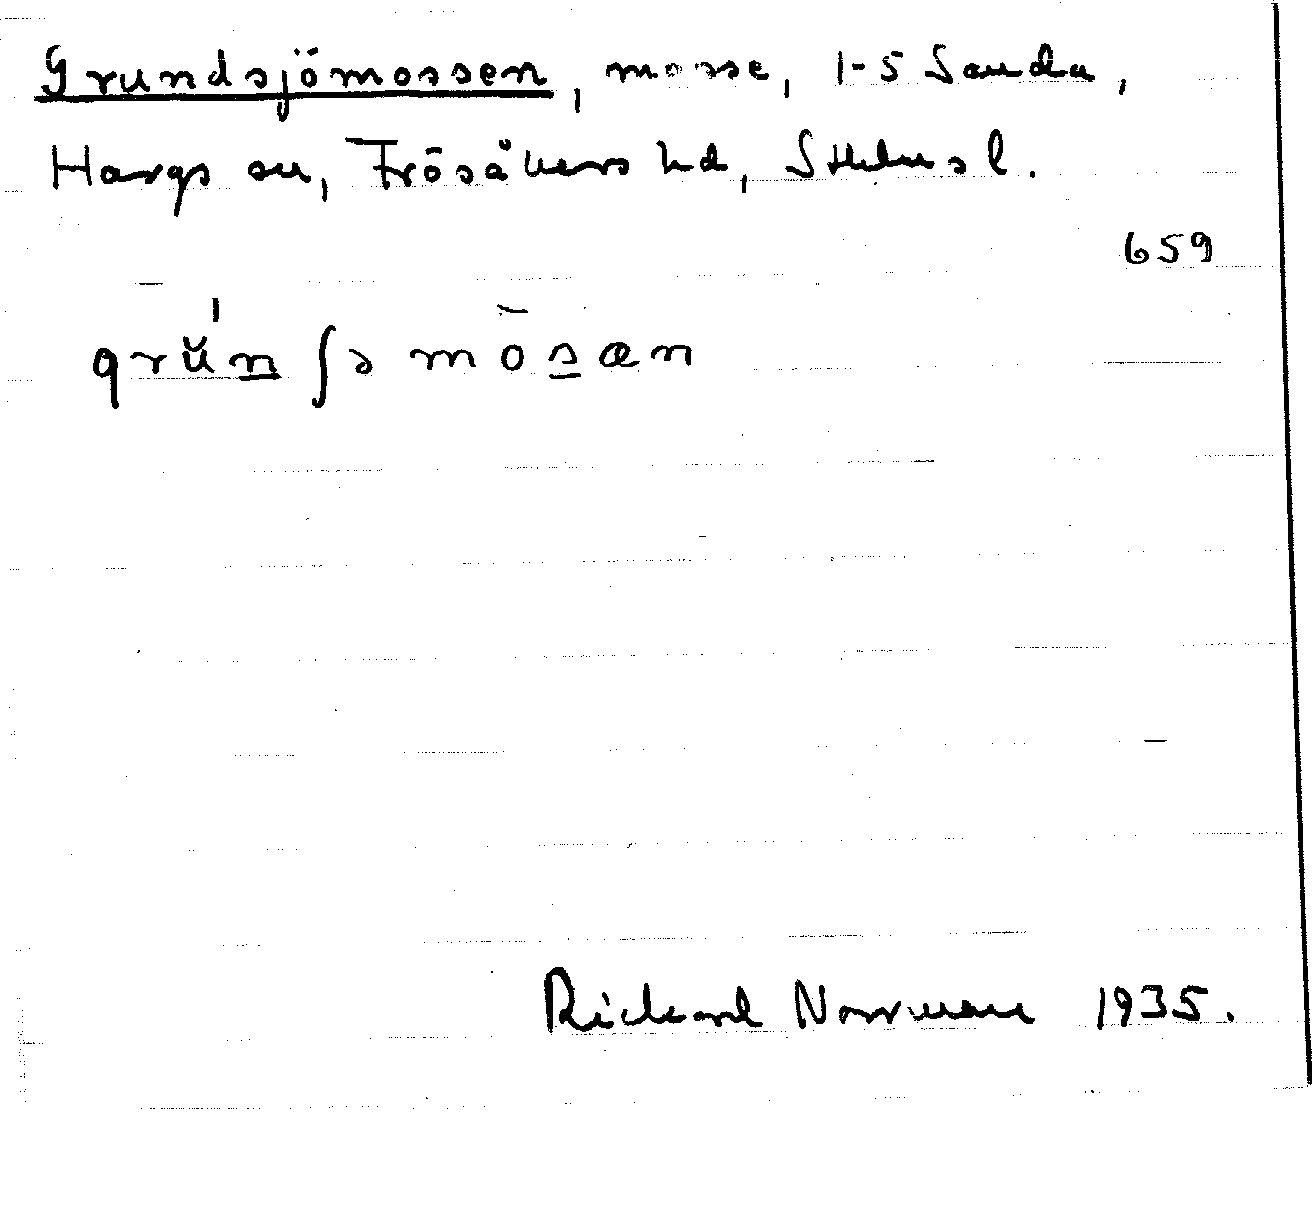 Grundsjömossen, mosse, 1-5 Sanda,
Hargs sn, Frösåkers hd, Sthlms l.
659
grŭn ʃə mòsan
Rickard Norrman 1935.